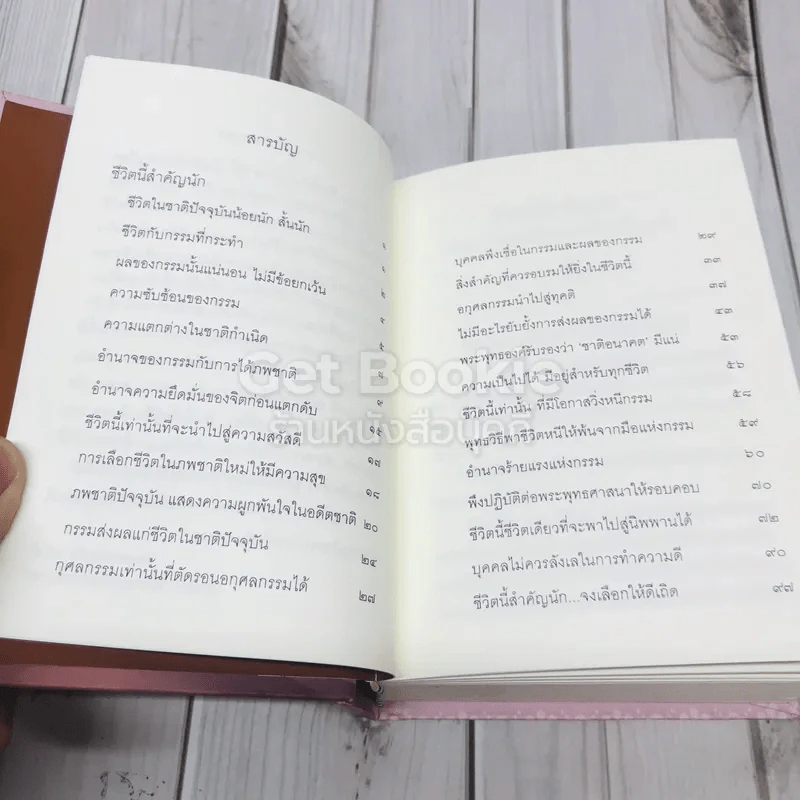 สารบัญ
ชีวิตนี้สำคัญนัก
ชีวิตในชาติปัจจุบันน้อยนัก สั้นนัก ๑
ชีวิตกับกรรมที่กระทำ
ผลของกรรมนั้นแน่นอน ไม่มีข้อยกเว้น ๒
ความซับซ้อนของกรรม ๔
ความแตกต่างในชาติกำเนิด ๕
อำนาจของกรรมกับการได้ภพชาติ ๘
อำนาจความยึดมั่นของจิตก่อนแตกดับ ๙
ชีวิตนี้เท่านั้นที่จะนำไปสู่ความสวัสดี
การเลือกชีวิตในภพชาติใหม่ให้มีความสุข ๑๗
ภพชาติปัจจุบัน แสดงความผูกพันใจในอดีตชาติ ๑๘
กรรมส่งผลแก่ชีวิตในชาติปัจจุบัน ๒๐
กุศลกรรมเท่านั้นที่ตัดรอนอกุศลกรรมได้ ๒๔
๒๗
บุคคลพึงเชื่อในกรรมและผลของกรรม ๒๙
สิ่งสำคัญที่ควรอบรมให้ยิ่งในชีวิตนี้ ๓๓
อกุศลกรรมนำไปสู่ทุคติ ๓๗
ไม่มีอะไรยับยั้งการส่งผลของกรรมได้ ๔๓
พระพุทธองค์รับรองว่า 'ชาติอนาคต' มีแน่ ๕๓
ความเป็นไปได้ มีอยู่สำหรับทุกชีวิต ๕๖
ชีวิตนี้เท่านั้น ที่มีโอกาสวิ่งหนีกรรม ๕๘
พุทธวิธีพาชีวิตหนีให้พ้นจากมือแห่งกรรม ๕๙
อำนาจร้ายแรงแห่งกรรม ๖๐
พึงปฏิบัติต่อพระพุทธศาสนาให้รอบคอบ ๗๐
ชีวิตนี้ชีวิตเดียวที่จะพาไปสู่นิพพานได้ ๗๒
บุคคลไม่ควรลังเลในการทำความดี ๙๐
ชีวิตนี้สำคัญนัก...จงเลือกให้ดีเถิด ๙๗
Get Bookie
ร้านหนังสือนุ้กกี้